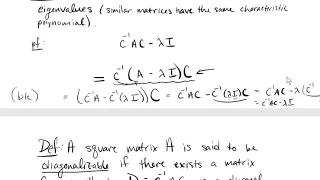 eigenvalues (similar matrices have the same characteristic
polynomial).
pf: C⁻¹AC - λI
= C⁻¹(A - λI)C ←
(b/c) = (C⁻¹A - C⁻¹(λI))C = C⁻¹AC - C⁻¹(λI)C = C⁻¹AC - λ(C⁻¹
= C⁻¹AC - λI
Def: A square matrix A is said to be
diagonalizable if there exists a matrix